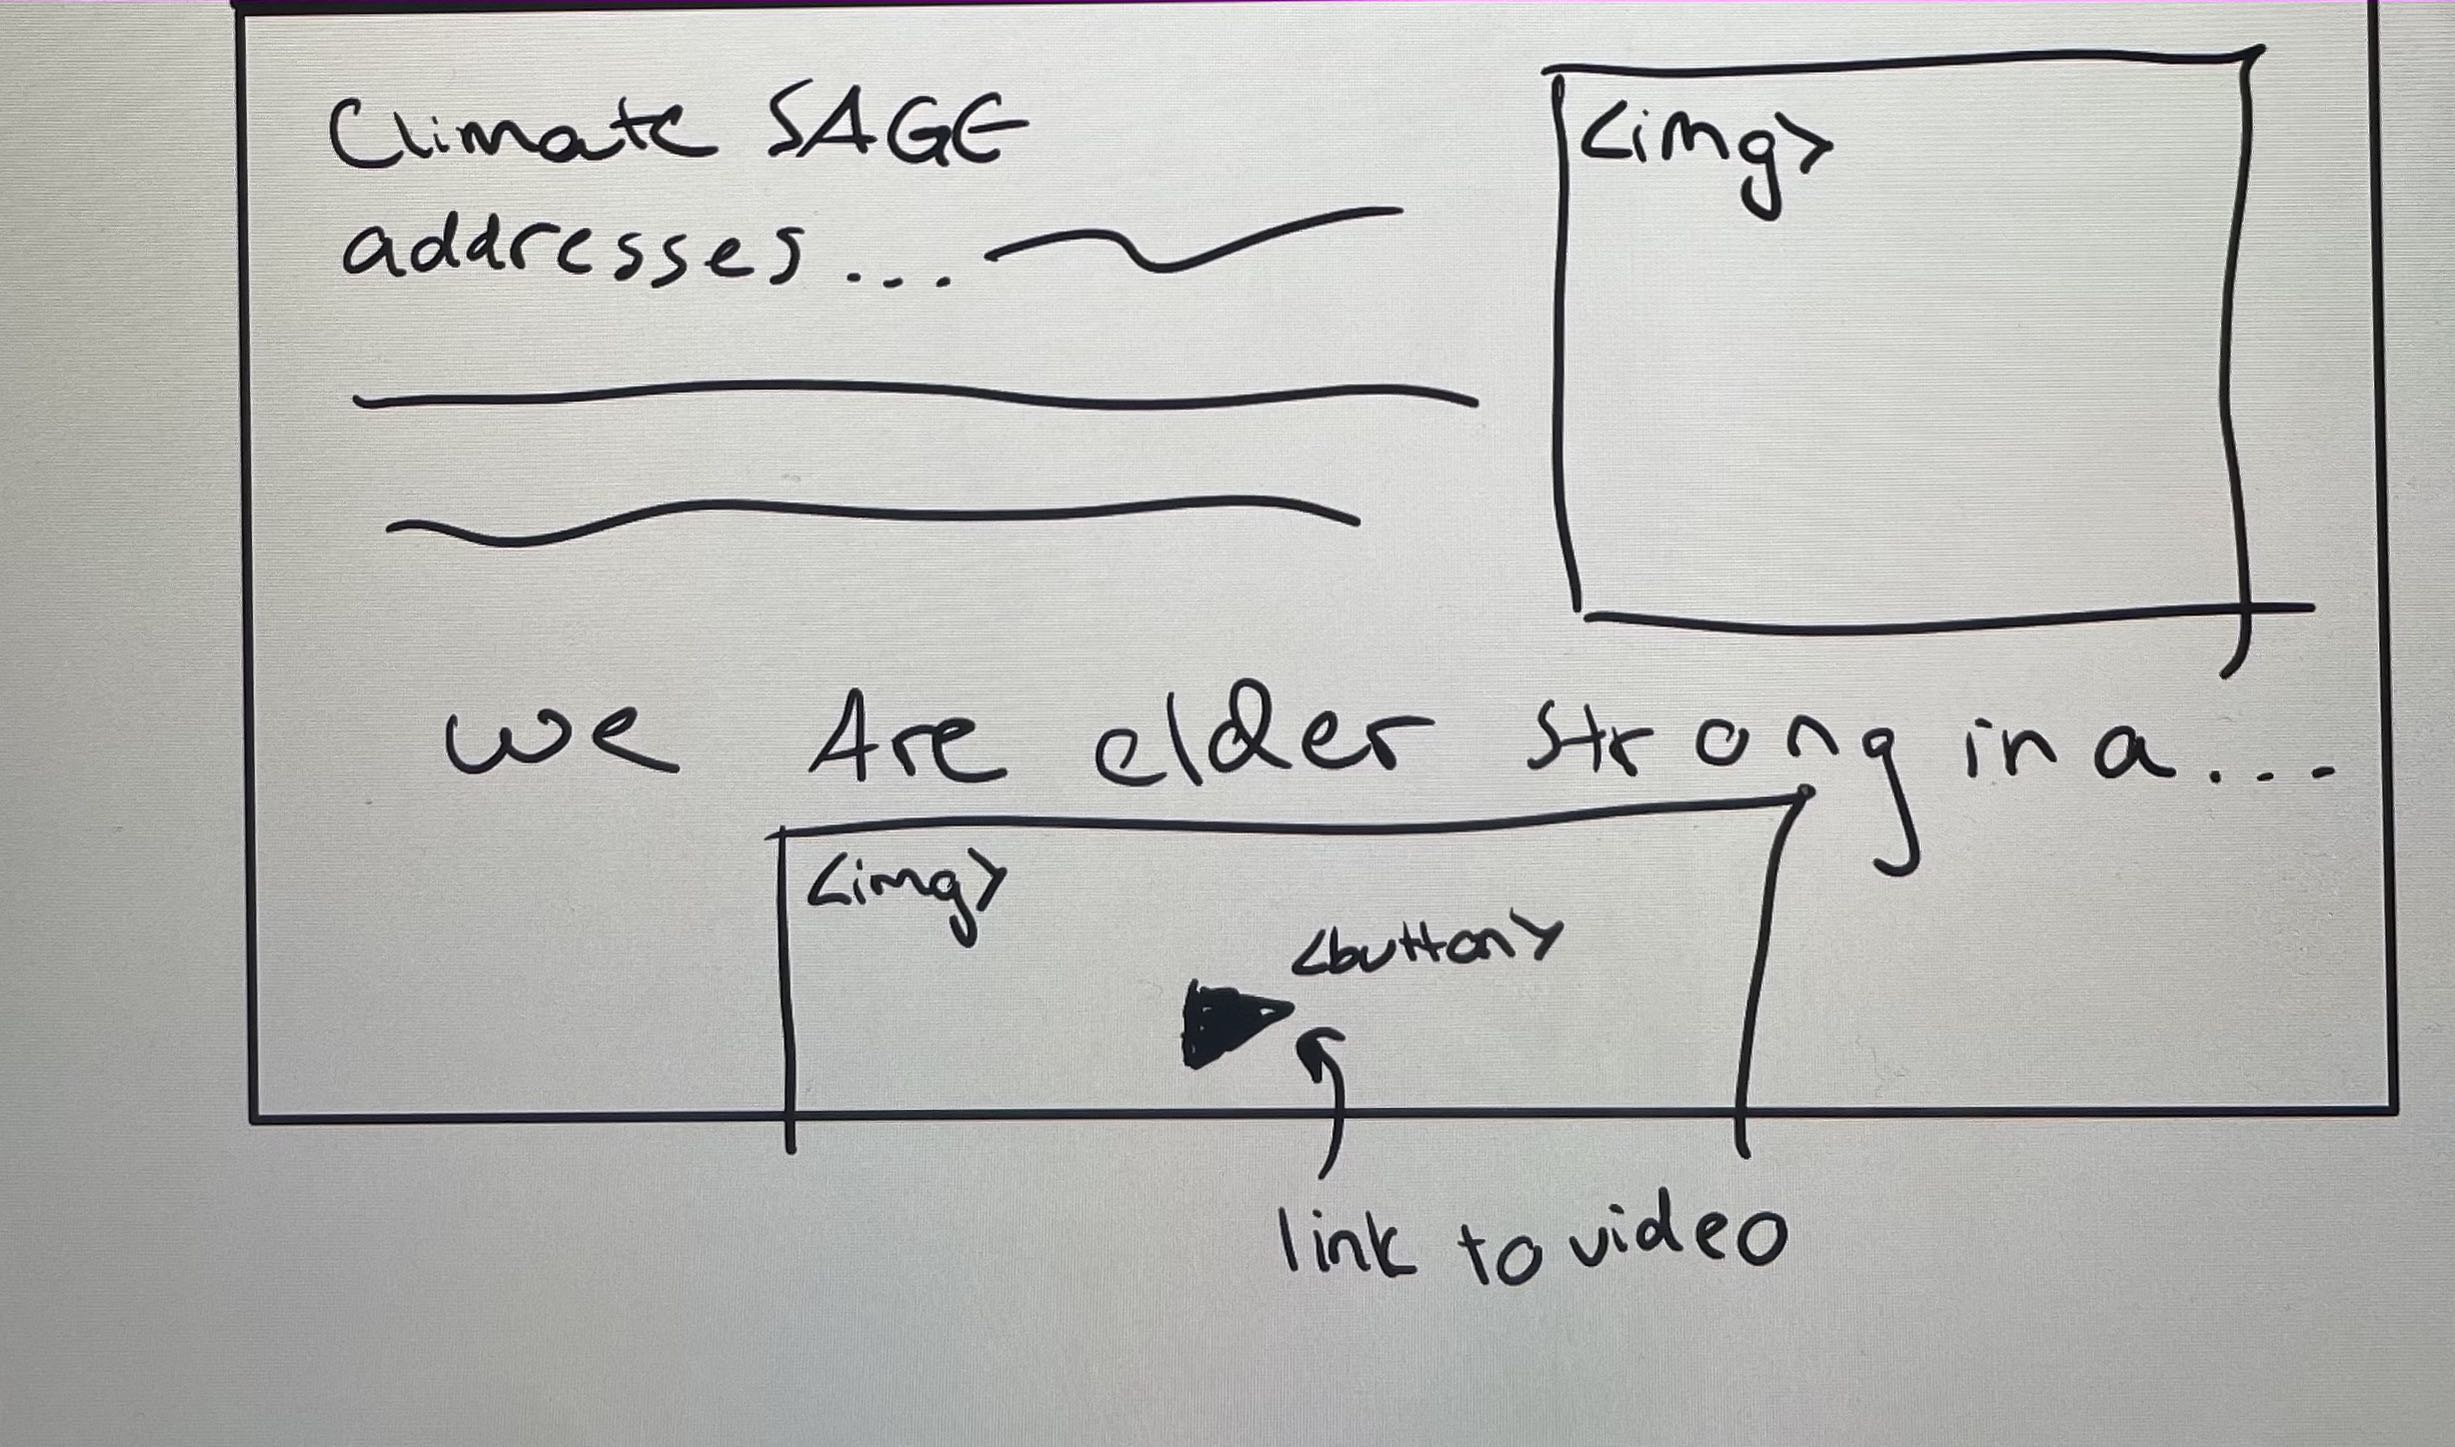 Climate SAGE
addresses...
<img>
we Are elder strong in a...
<img>
<button>
link to video